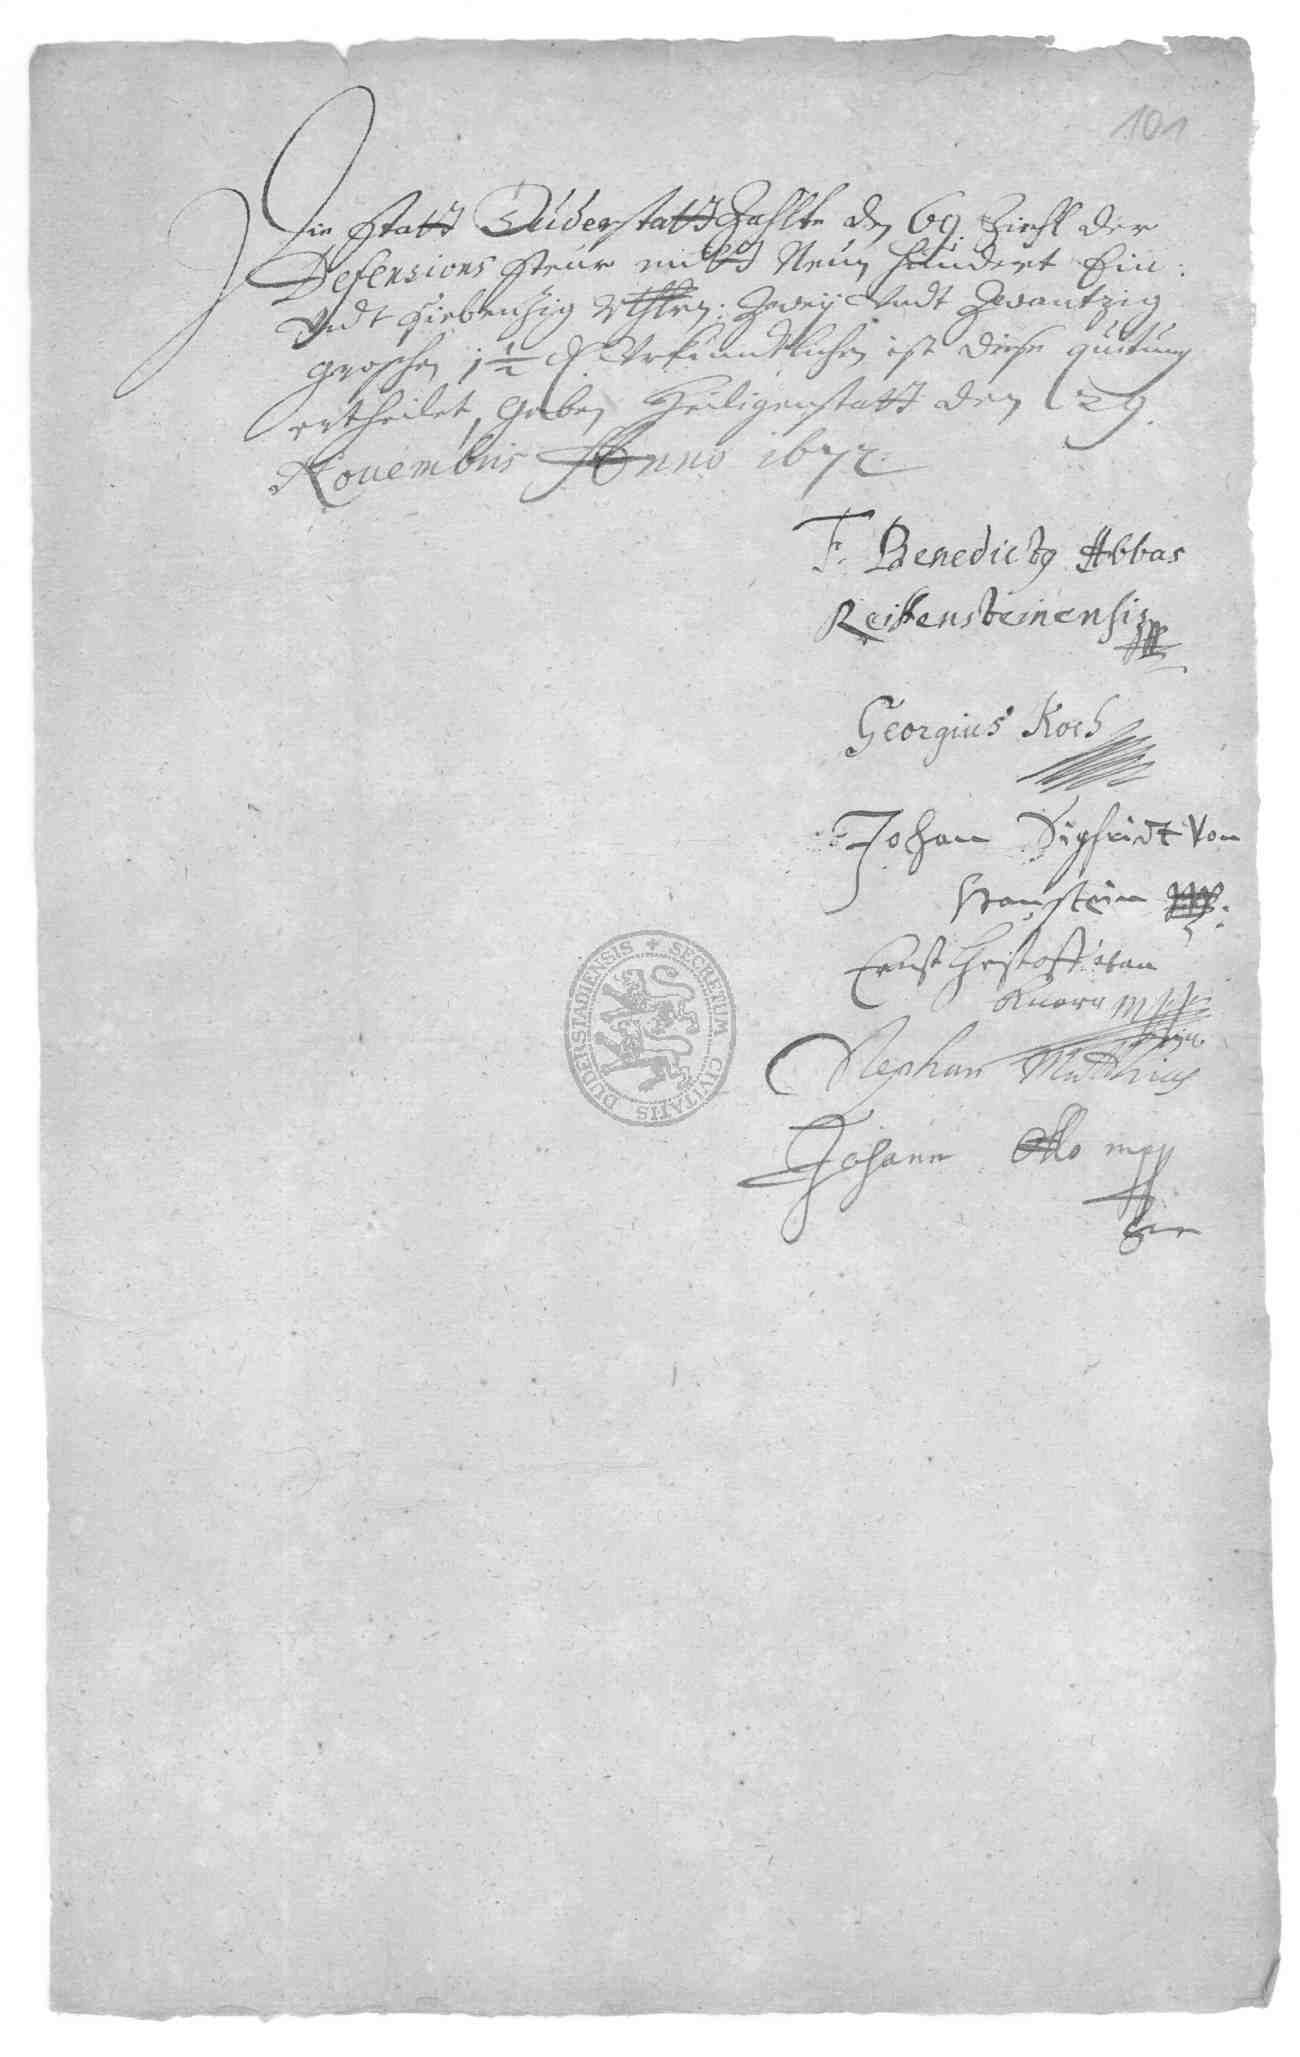 101
Die Statt Duderstatt Zahlte den 69. Ziehl der
Defensions Steur mitt Neun hundert Ein:
Undt Siebentzig Rthlrn: Zweÿ Undt Zwantzig
groschen 1 1/2 ₰ Urkundtlichen ist diese quitung
ertheilet, Geben Heiligenstatt den 29.
Novembris Anno 1672.
F. Benedictus Abbas
Reiffensteinensis
Georgius Koch
Johan Sigfridt Von
Hanstein
Ernst Christoff von
Knorr mpp
Stephan Matthias
Johann Otto mpp
SECRETUM CIVITATIS DUDERSTADIENSIS